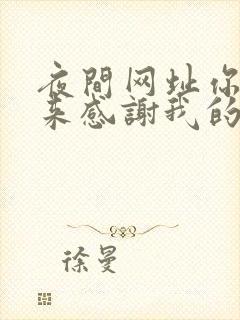 夜間网址你
来感謝我的
徐曼